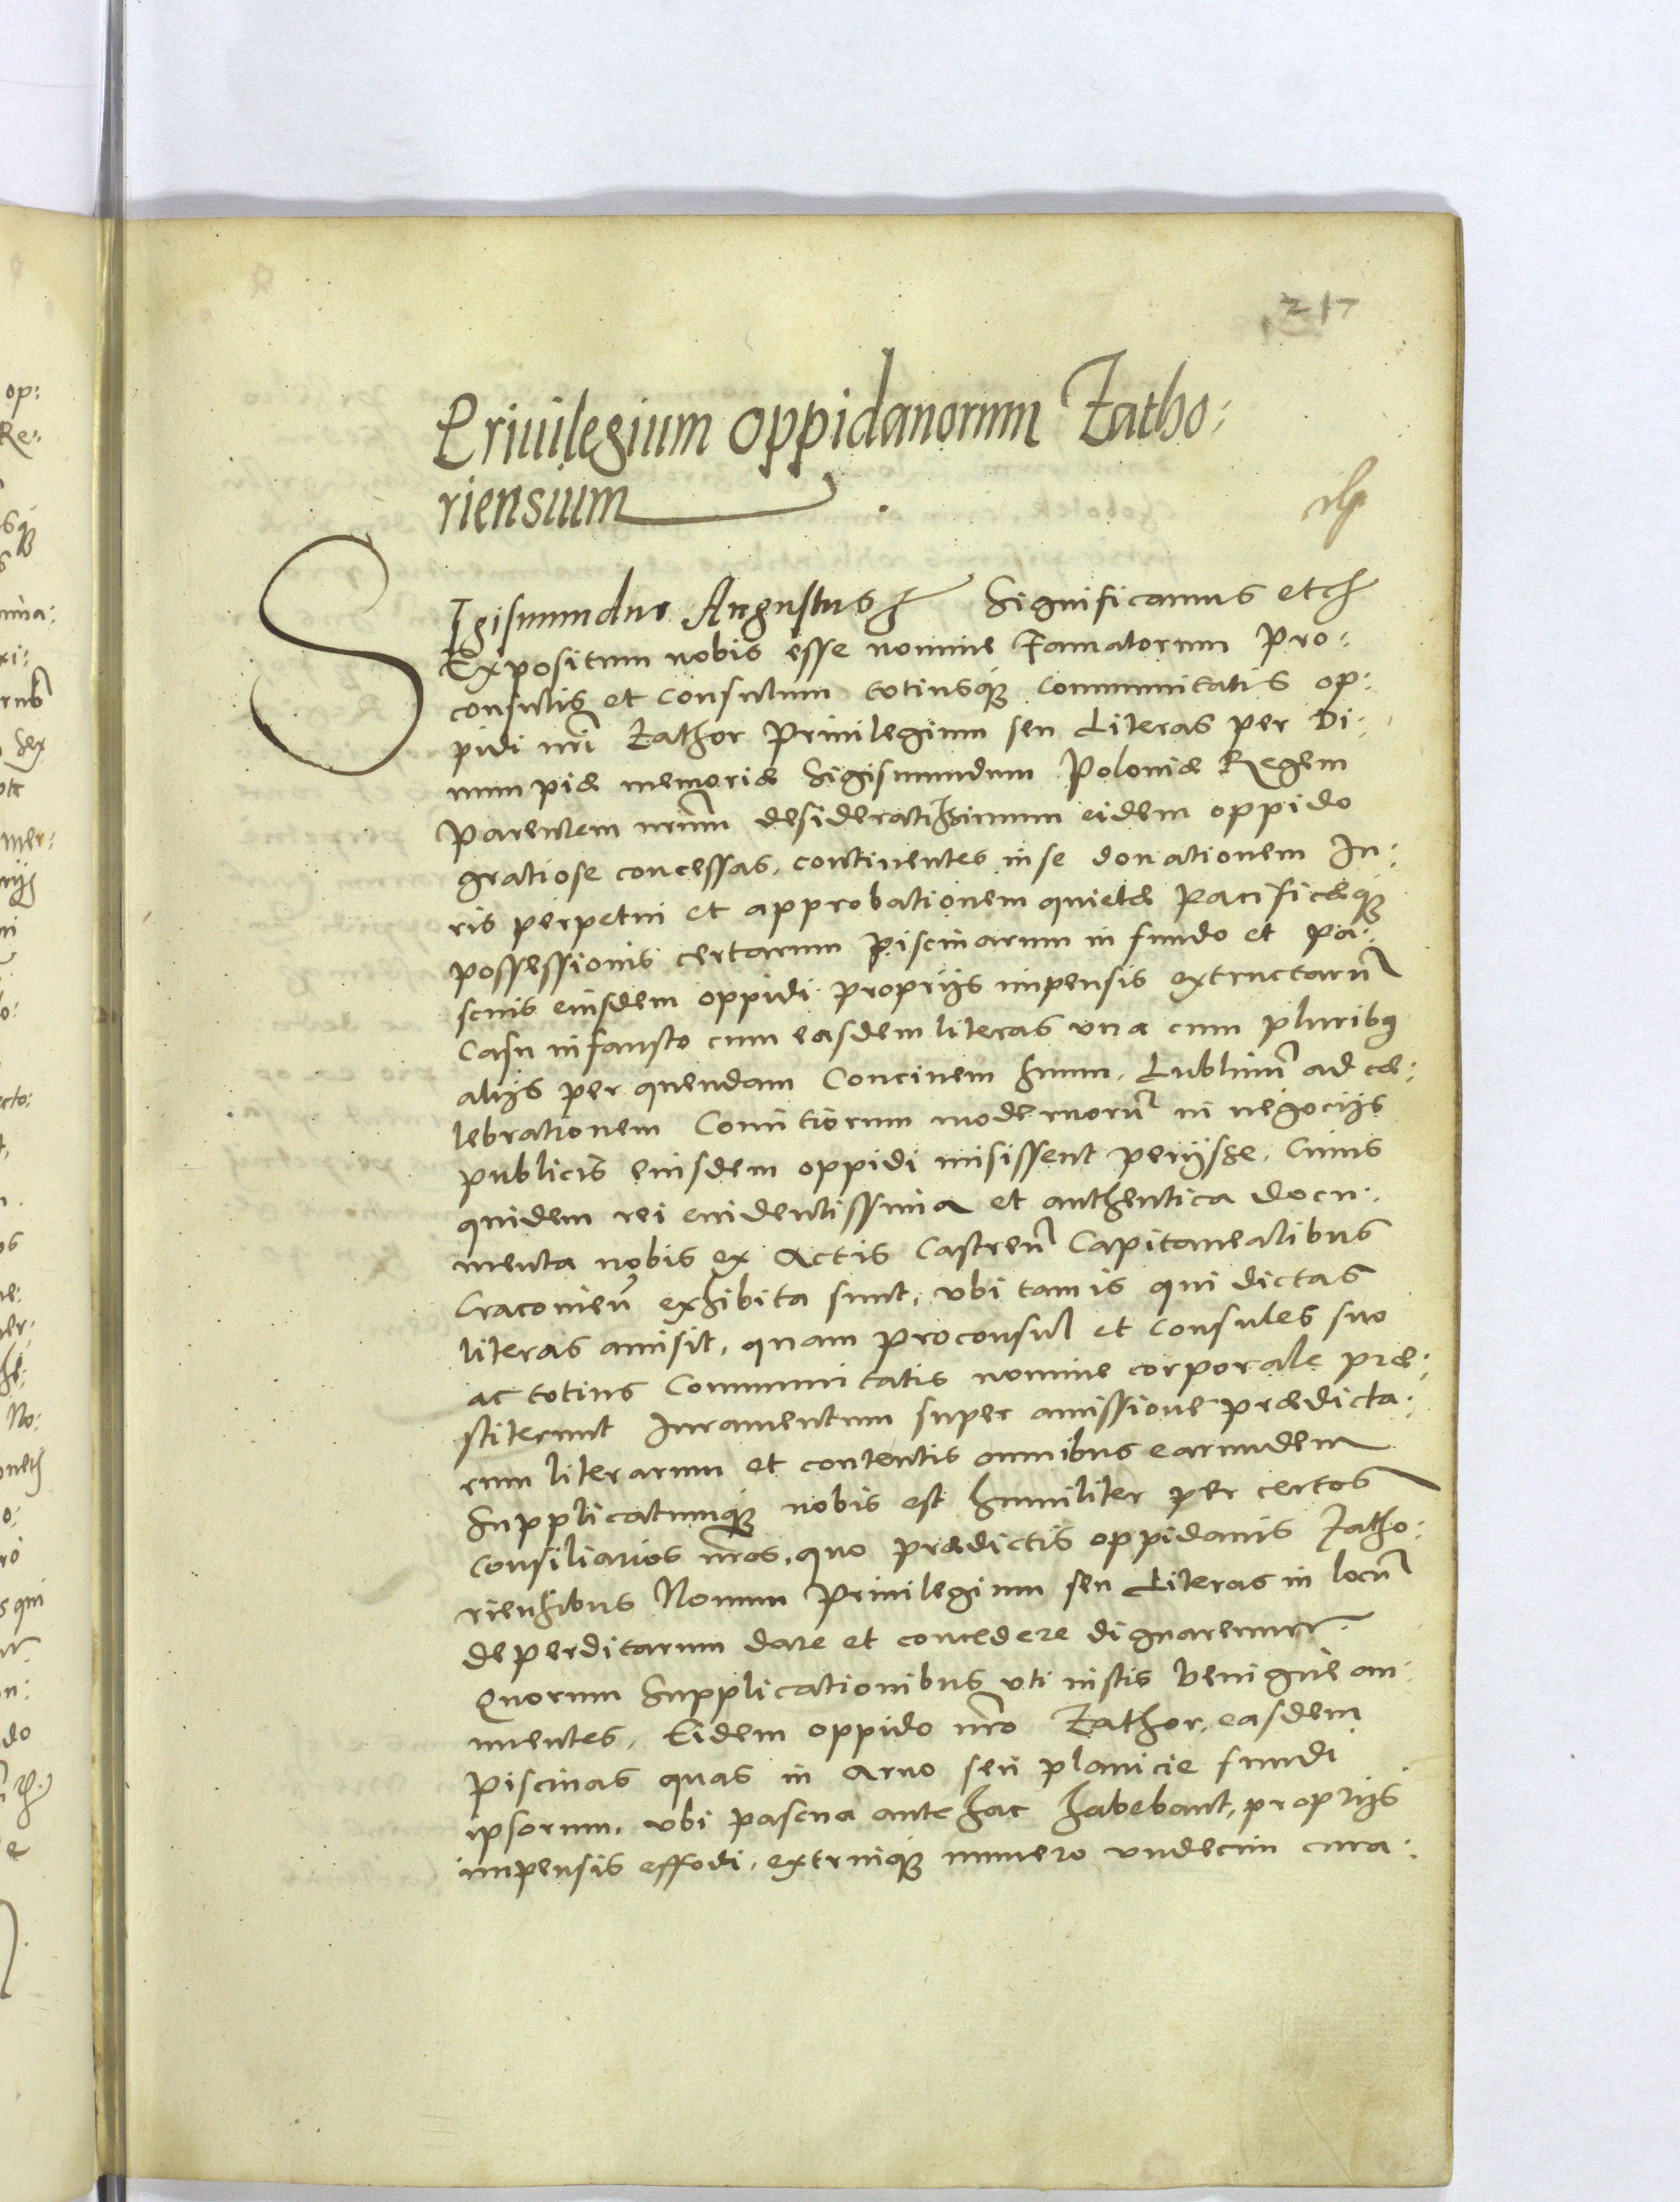 217
Priuilegium oppidanorum Zatho:
riensium
Sigismundus Augustus Significamus etc
Expositum nobis esse nomine Famatorum Pro:
consulis et Consulum totiusq₃ Communitatis op:
pidi nri Zathor Priuilegium seu Literas per Di:
uum piæ memoriæ Sigismundum Poloniæ Regem
Parentem nrum desideratissimum eidem oppido
gratiose concessas, continentes in se donationem Iu:
ris perpetui et approbationem quietæ Pacificæq₃
possessionis certarum piscinarum in fundo et pa:
scuis eiusdem oppidi proprijs impensis extructarū
Casu infausto cum easdem literas vna cum pluribꝰ
alijs per quendam Conciuem suum, Lublinū ad cæ:
lebrationem Comitiorum modernorū in negocijs
publicis eiusdem oppidi misissent perijsse, Cuius
quidem rei euidentissima et authentica docu:
menta nobis ex Actis Castreñ Capitanealibus
Cracovieñ exhibita sunt, vbi tam is qui dictas
literas amisit, quam proconsul et Consules suo
ac totius Communitatis nomine corporale præ:
stiterunt Iuramentum super amissione prædicta:
rum literarum et contentis omnibus earundem
Supplicatumq₃ nobis est humiliter per certos
Consiliarios nros, quo prædictis oppidanis Zatho:
riensibus Nouum Priuilegium seu Literas in locū
deperditarum dare et concedere dignaremur.
Quorum Supplicationibus vti iustis benigne an:
nuentes, Eidem oppido nro Zathor, easdem
piscinas quas in aruo seu planicie fundi
ipsorum, vbi pascua ante hac habebant, proprijs
impensis effodi, extruiq₃ numero vndecim cura: